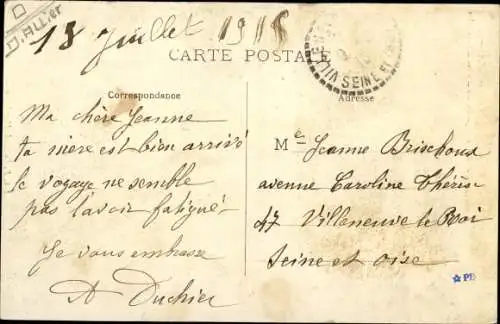 D. Allier
18 Juillet 1915
CARTE POSTALE
SEINE
Correspondance
Adresse
Ma chère Jeanne
ta mère est bien arrivé
le voyage ne semble
pas l'avoir fatigué
Je vous embrasse
A Duchier
Me Jeanne Brischoux
avenue Caroline Thérèse
47 Villeneuve le Roi
Seine et oise
PB